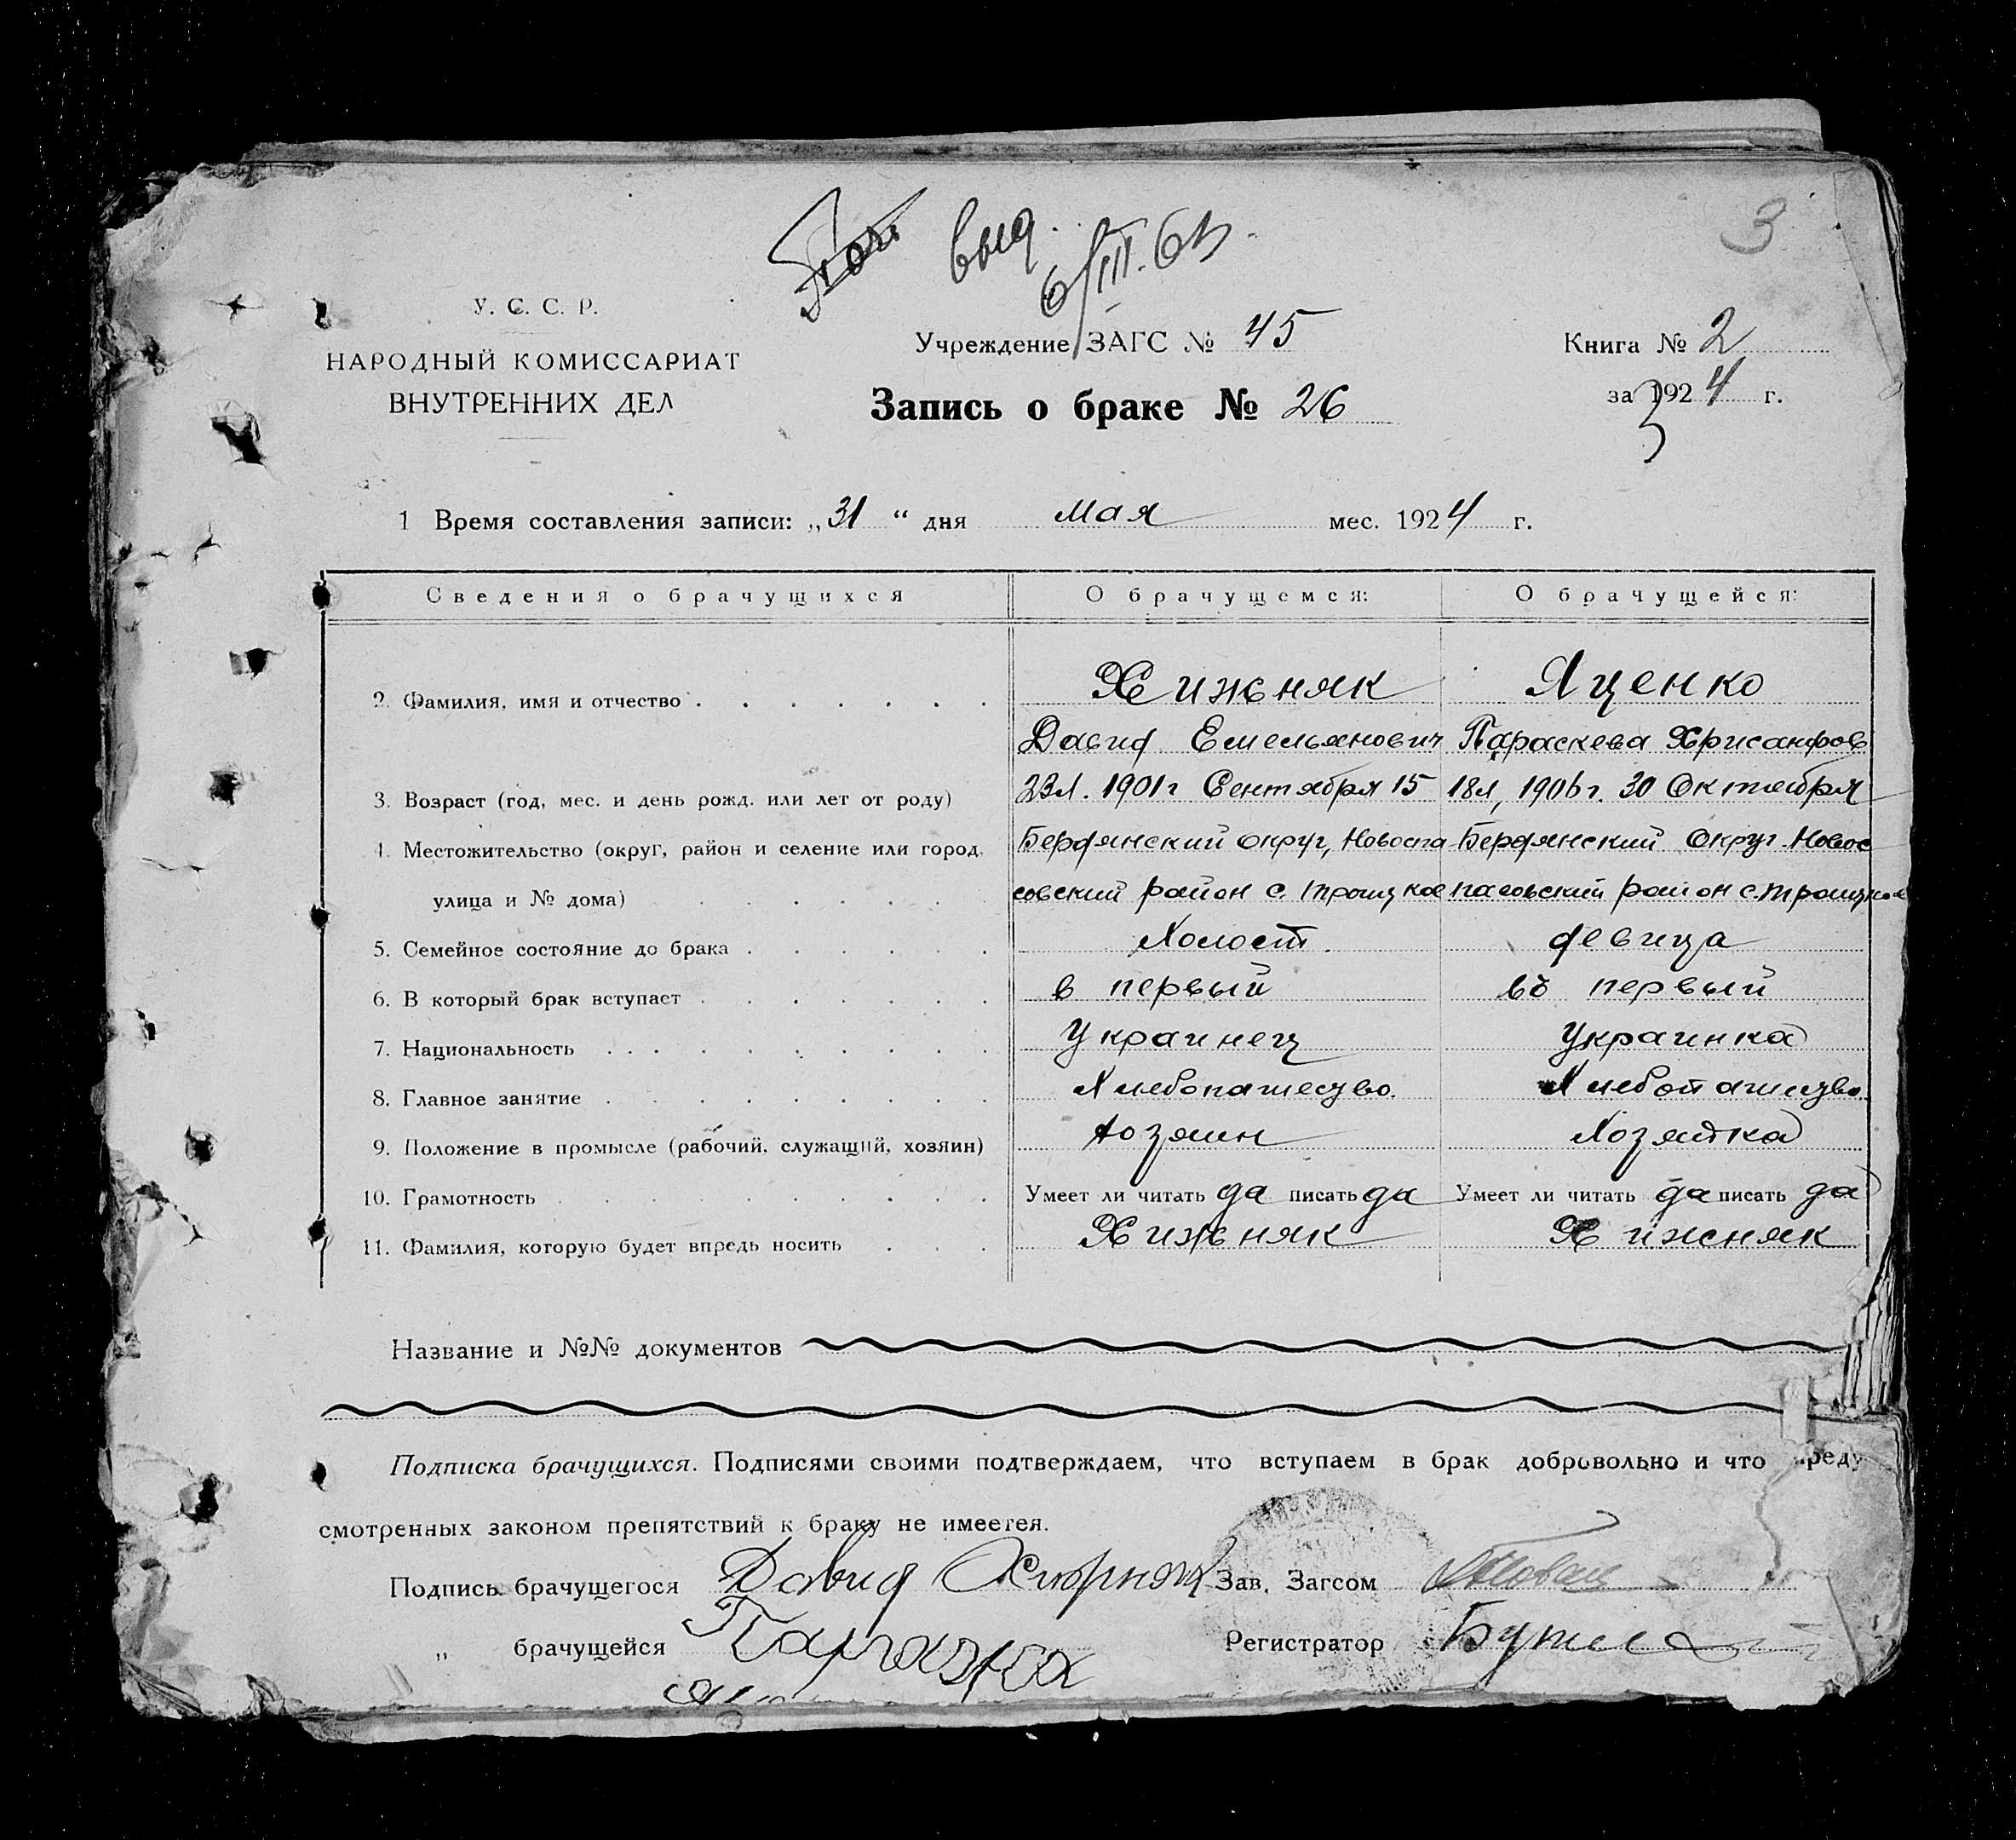 выд.
6/III.63
3
У. С. С. Р.
НАРОДНЫЙ КОМИССАРИАТ
ВНУТРЕННИХ ДЕЛ
Учреждение ЗАГС № 45
Запись о браке № 26
Книга № 2
за 1924 г.
3
1 Время составления записи: „31 “ дня Мая мес. 1924 г.
Сведения о брачущихся О брачущемся: О брачущейся:
2. Фамилия, имя и отчество Хижьняк Яценко
Давид Емельянович Параскева Хрисанфов
3. Возраст (год, мес. и день рожд. или лет от роду) 23л. 1901г Сентября 15 18л, 1906г. 30 Октября
4. Местожительство (округ, район и селение или город, Бердянский округ, Новоспа Бердянский Округ Новос
улица и № дома) совский район с. Троицкое пасовский район с. Троицкое
5. Семейное состояние до брака Холост. девица
6. В который брак вступает в первый въ первый
7. Национальность Украинец Украинка
8. Главное занятие Хлебопашество. Хлебопашество.
9. Положение в промысле (рабочий, служащий, хозяин) Хозяин Хозяйка
10. Грамотность Умеет ли читать да писать да Умеет ли читать да писать да
11. Фамилия, которую будет впредь носить Хижьняк Хижняк
Название и №№ документов
Подписка брачущихся. Подписями своими подтверждаем, что вступаем в брак добровольно и что преду
смотренных законом препятствий к браку не имеется.
Подпись брачущегося Давид Хижняк Зав. Загсом
„ брачущейся Регистратор